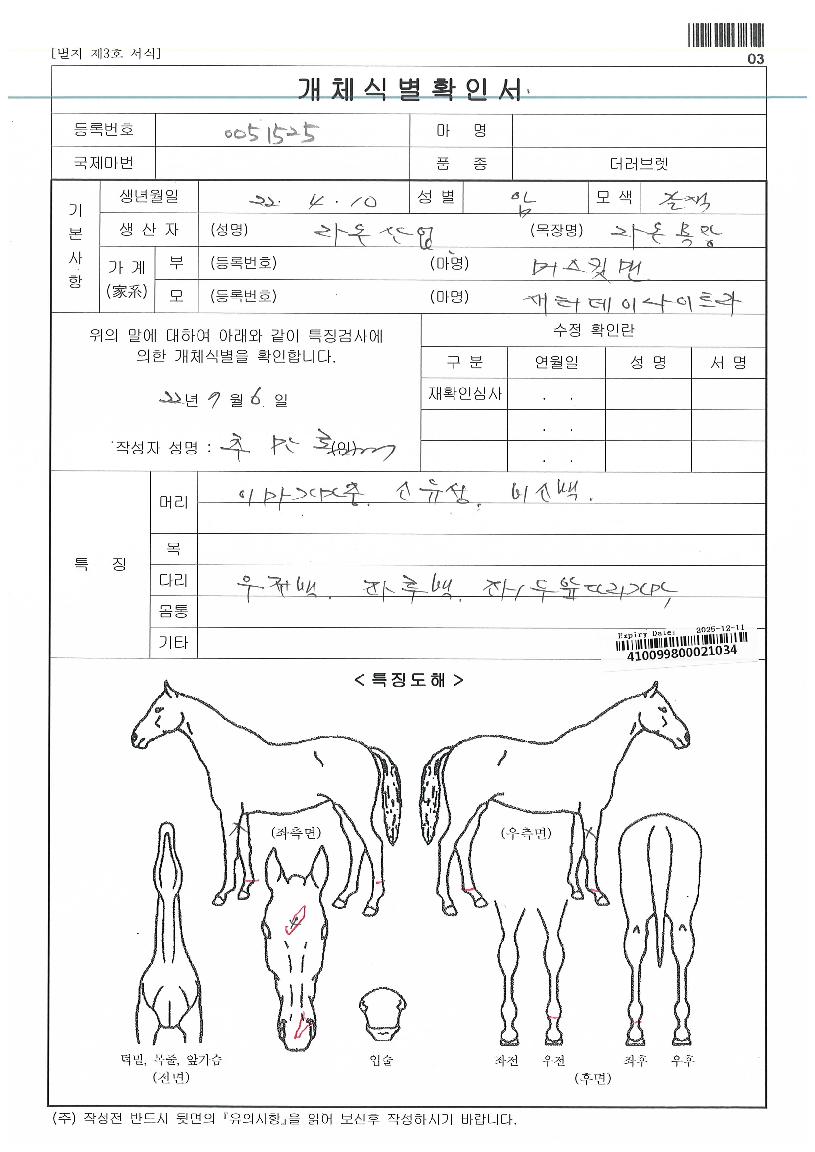 [별지 제3호 서식]
03
개체식별확인서
등록번호 0051525 마 명
국제마번 품 종 더러브렛
기본사항
생년월일 22. 4. 10 성별 암 모색 갈색
생산자 (성명) 라온산업 (목장명) 라온목장
가계 (家系) 부 (등록번호) (마명) 머스킷맨
모 (등록번호) (마명)
위의 말에 대하여 아래와 같이 특징검사에
의한 개체식별을 확인합니다.
22년 7월 6일
작성자 성명 : (인)
수정 확인란
구 분 연월일 성 명 서 명
재확인심사 . .
. .
. .
특 징
머리 소유성, 비소백.
목
다리 우전백. 좌후백.
몸통
기타
Expiry Date: 2025-12-11
410099800021034
< 특징도해 >
(좌측면) (우측면)
턱밑, 목줄, 앞가슴
(전면)
입술
좌전 우전 좌후 우후
(후면)
(주) 작성전 반드시 뒷면의 『유의사항』을 읽어 보신후 작성하시기 바랍니다.